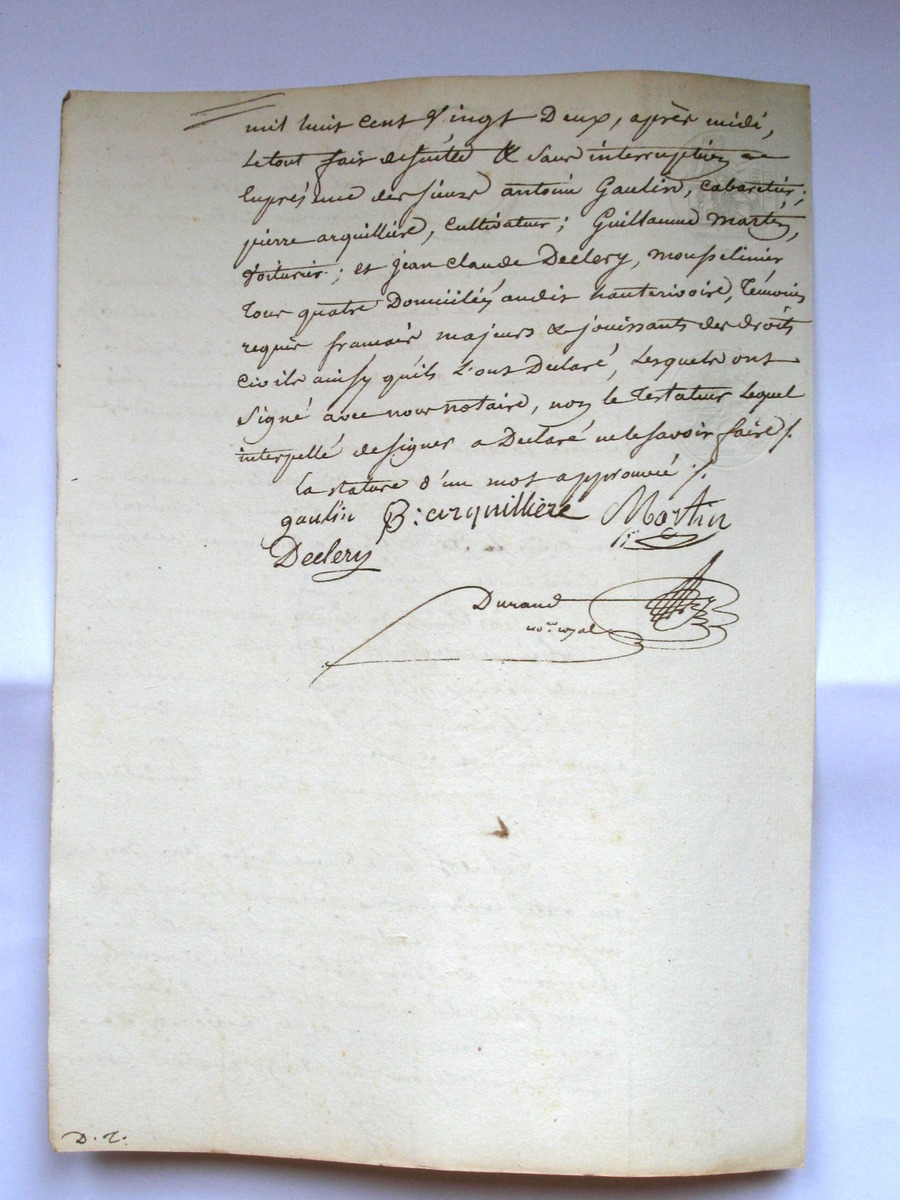 mil huit cent vingt Deux, après midi,
Le tout fait de suitte & sans interruption
En présence des sieurs antoine Gaulin, cabaretier;
pierre arquillière, cultivateur; Guillaume martin,
Voiturier; et jean claude Declery, mousselinier
Tous quatre Domiciliés audit hauterivoire, Témoins
requis francais majeurs & jouissants des droits
civils ainsy qu'ils L'ont Declaré, Lesquels ont
Signé avec nous notaire, non le Testateur Lequel
interpellé de signer a Declaré ne le savoir faire /.
La rature d'un mot approuvée /.
gaulin B: arquillière Martin
Declery
Durand
no.re royal
D. T.